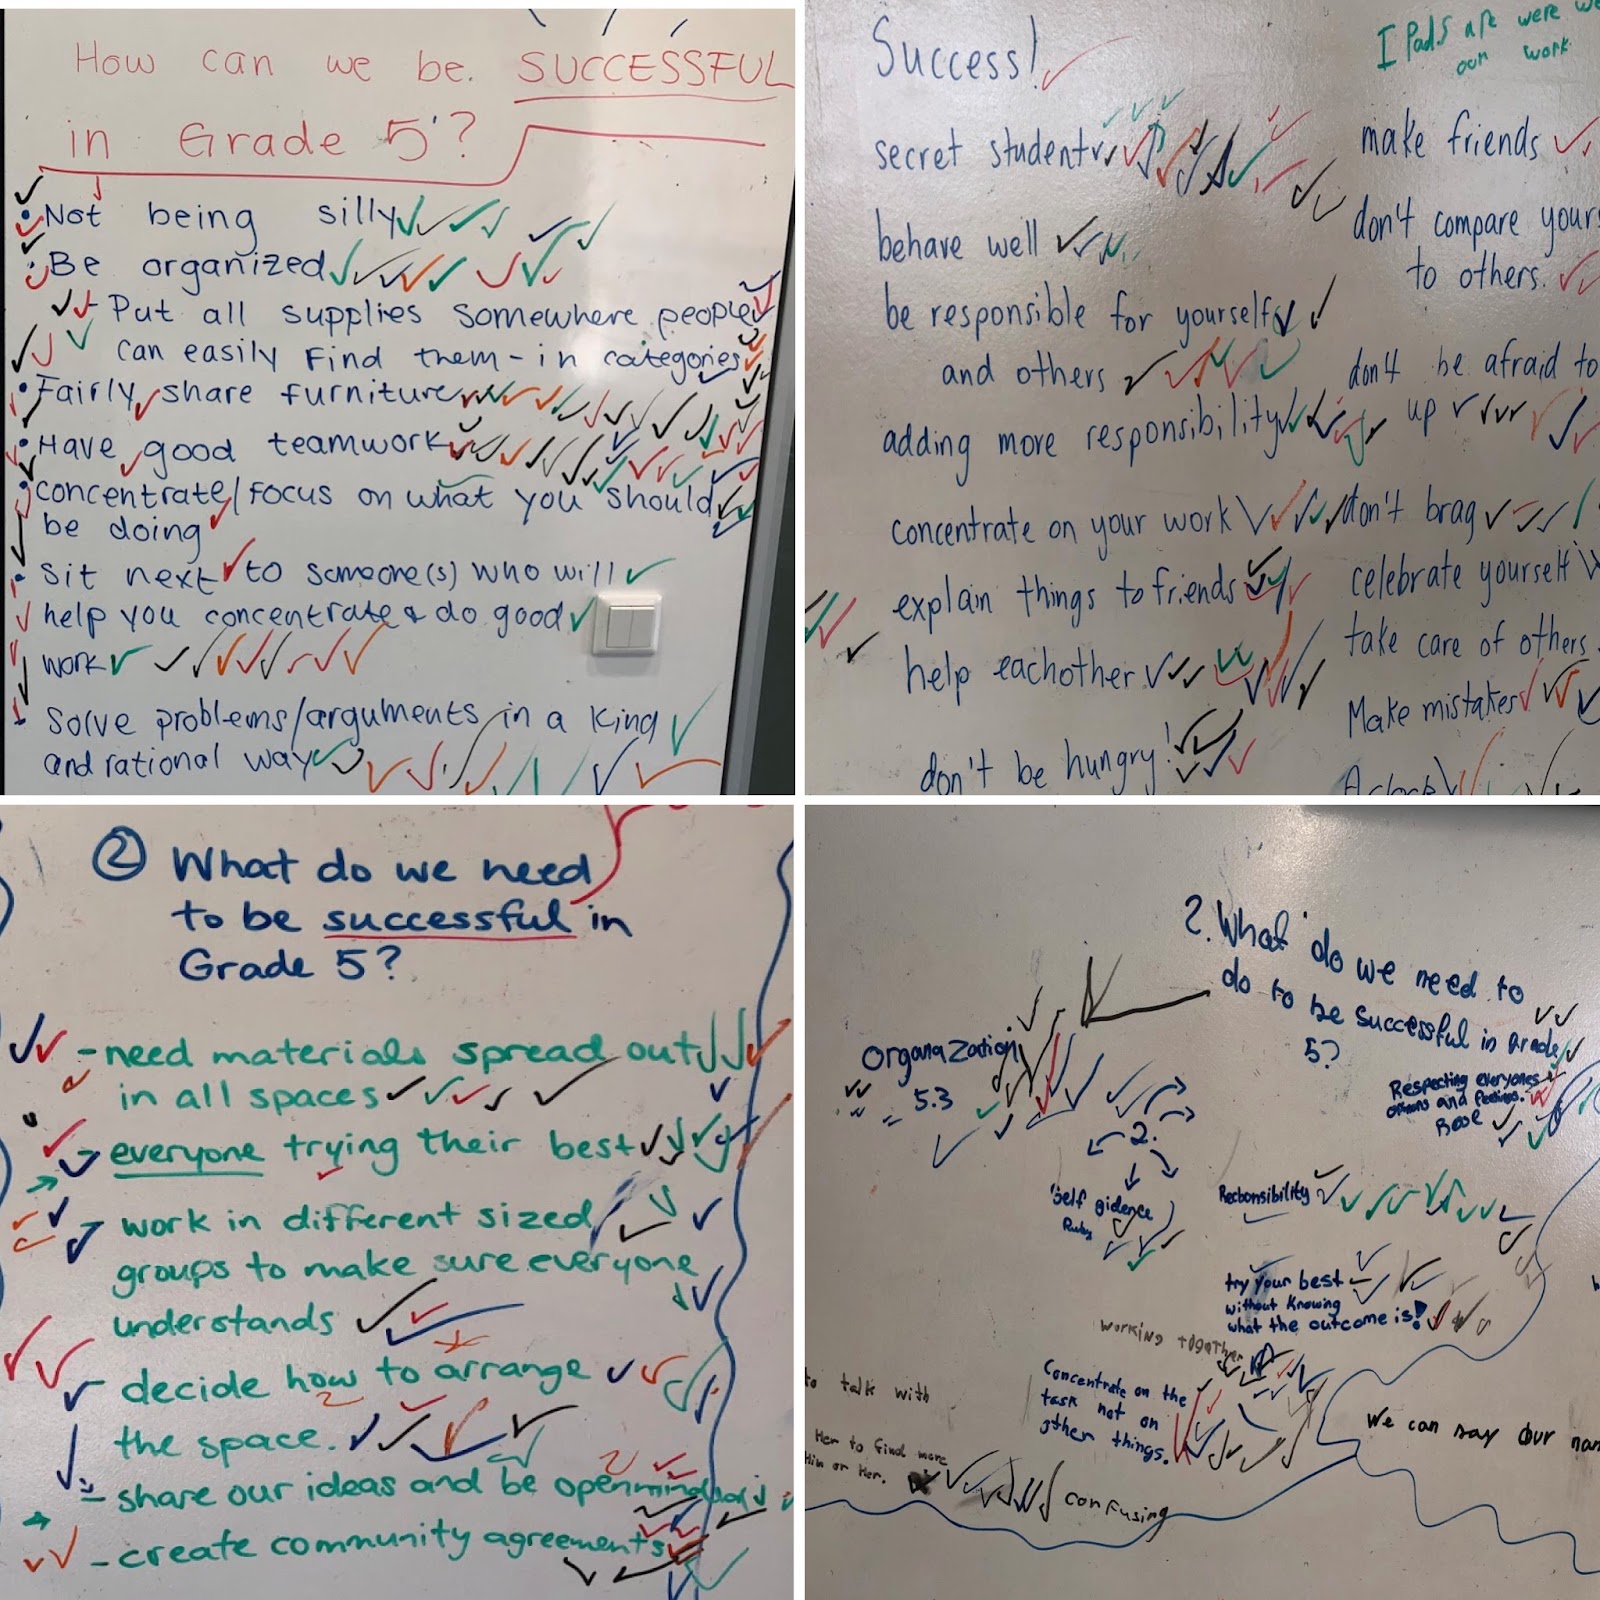 How can we be SUCCESSFUL
in Grade 5?
Not being silly
Be organized
Put all supplies somewhere people
can easily Find them - in categories
Fairly share furniture
Have good teamwork
concentrate/Focus on what you should
be doing
Sit next to someone(s) who will
help you concentrate & do good
work
Solve problems/arguments in a kind
and rational way
Success!
secret student
behave well
be responsible for yourself
and others
adding more responsibility
concentrate on your work
explain things to friends
help eachother
don't be hungry!
I Pads
our work
make friends
don't compare yours
to others.
don't be afraid to
up
don't brag
celebrate yourself
take care of others
Make mistakes
2 What do we need
to be successful in
Grade 5?
- need materials spread out
in all spaces
- everyone trying their best
- work in different sized
groups to make sure everyone
understands
- decide how to arrange
the space.
- share our ideas and be openminded
- create community agreements
2. What do we need to
do to be successful in Grade
5?
Organazation
5.3
Respecting everyones
opinions and feelings.
2.
Self gidence
Ruby
Recbonsibility
try your best
without Knowing
what the outcome is!
working together
Concentrate on the
task not on
other things.
to talk with
Her to find more
Him or Her.
confusing
We can say our nam